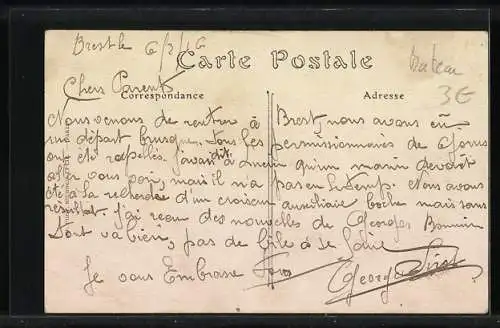 Brest le 6/2/16
Carte Postale
bateau
3€
Chers Parents
Correspondance
Adresse
Nous venons de rentrer à Brest nous avons eu
un départ brusque. Tous les permissionnaires de 6 jours
ont été rappelés j'avais dit à un marin devait
aller vous voir, mais il n'a pas eu le temps. Nous avons
été à la recherche d'un croiseur auxiliaire boche mais sans
résultat. J'ai reçu des nouvelles de Georges
Tout va bien, pas de bile à se faire
Je vous Embrasse Tous
Georges